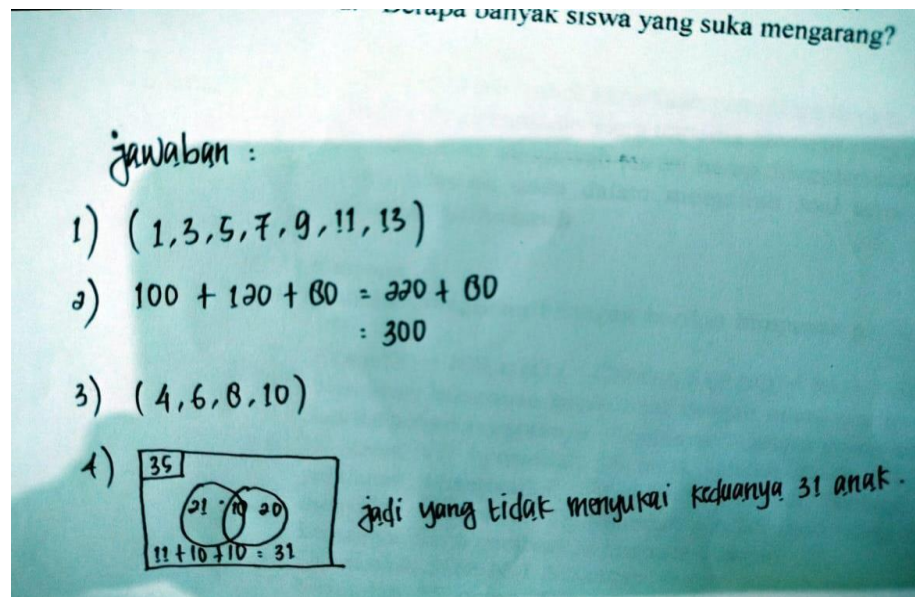 banyak siswa yang suka mengarang?
jawaban :
1) ( 1, 3, 5, 7, 9, 11, 13 )
2) 100 + 120 + 80 = 220 + 80
: 300
3) ( 4, 6, 8, 10 )
4) 35
21 10 20
jadi yang tidak menyukai keduanya 31 anak.
11 + 10 + 10 = 31